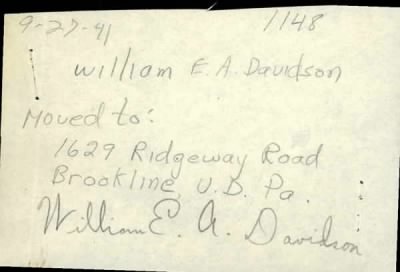 9-27-41 1148
William E. A. Davidson
Moved to:
1629 Ridgeway Road
Brookline, U.D. Pa.
William E. A. Davidson